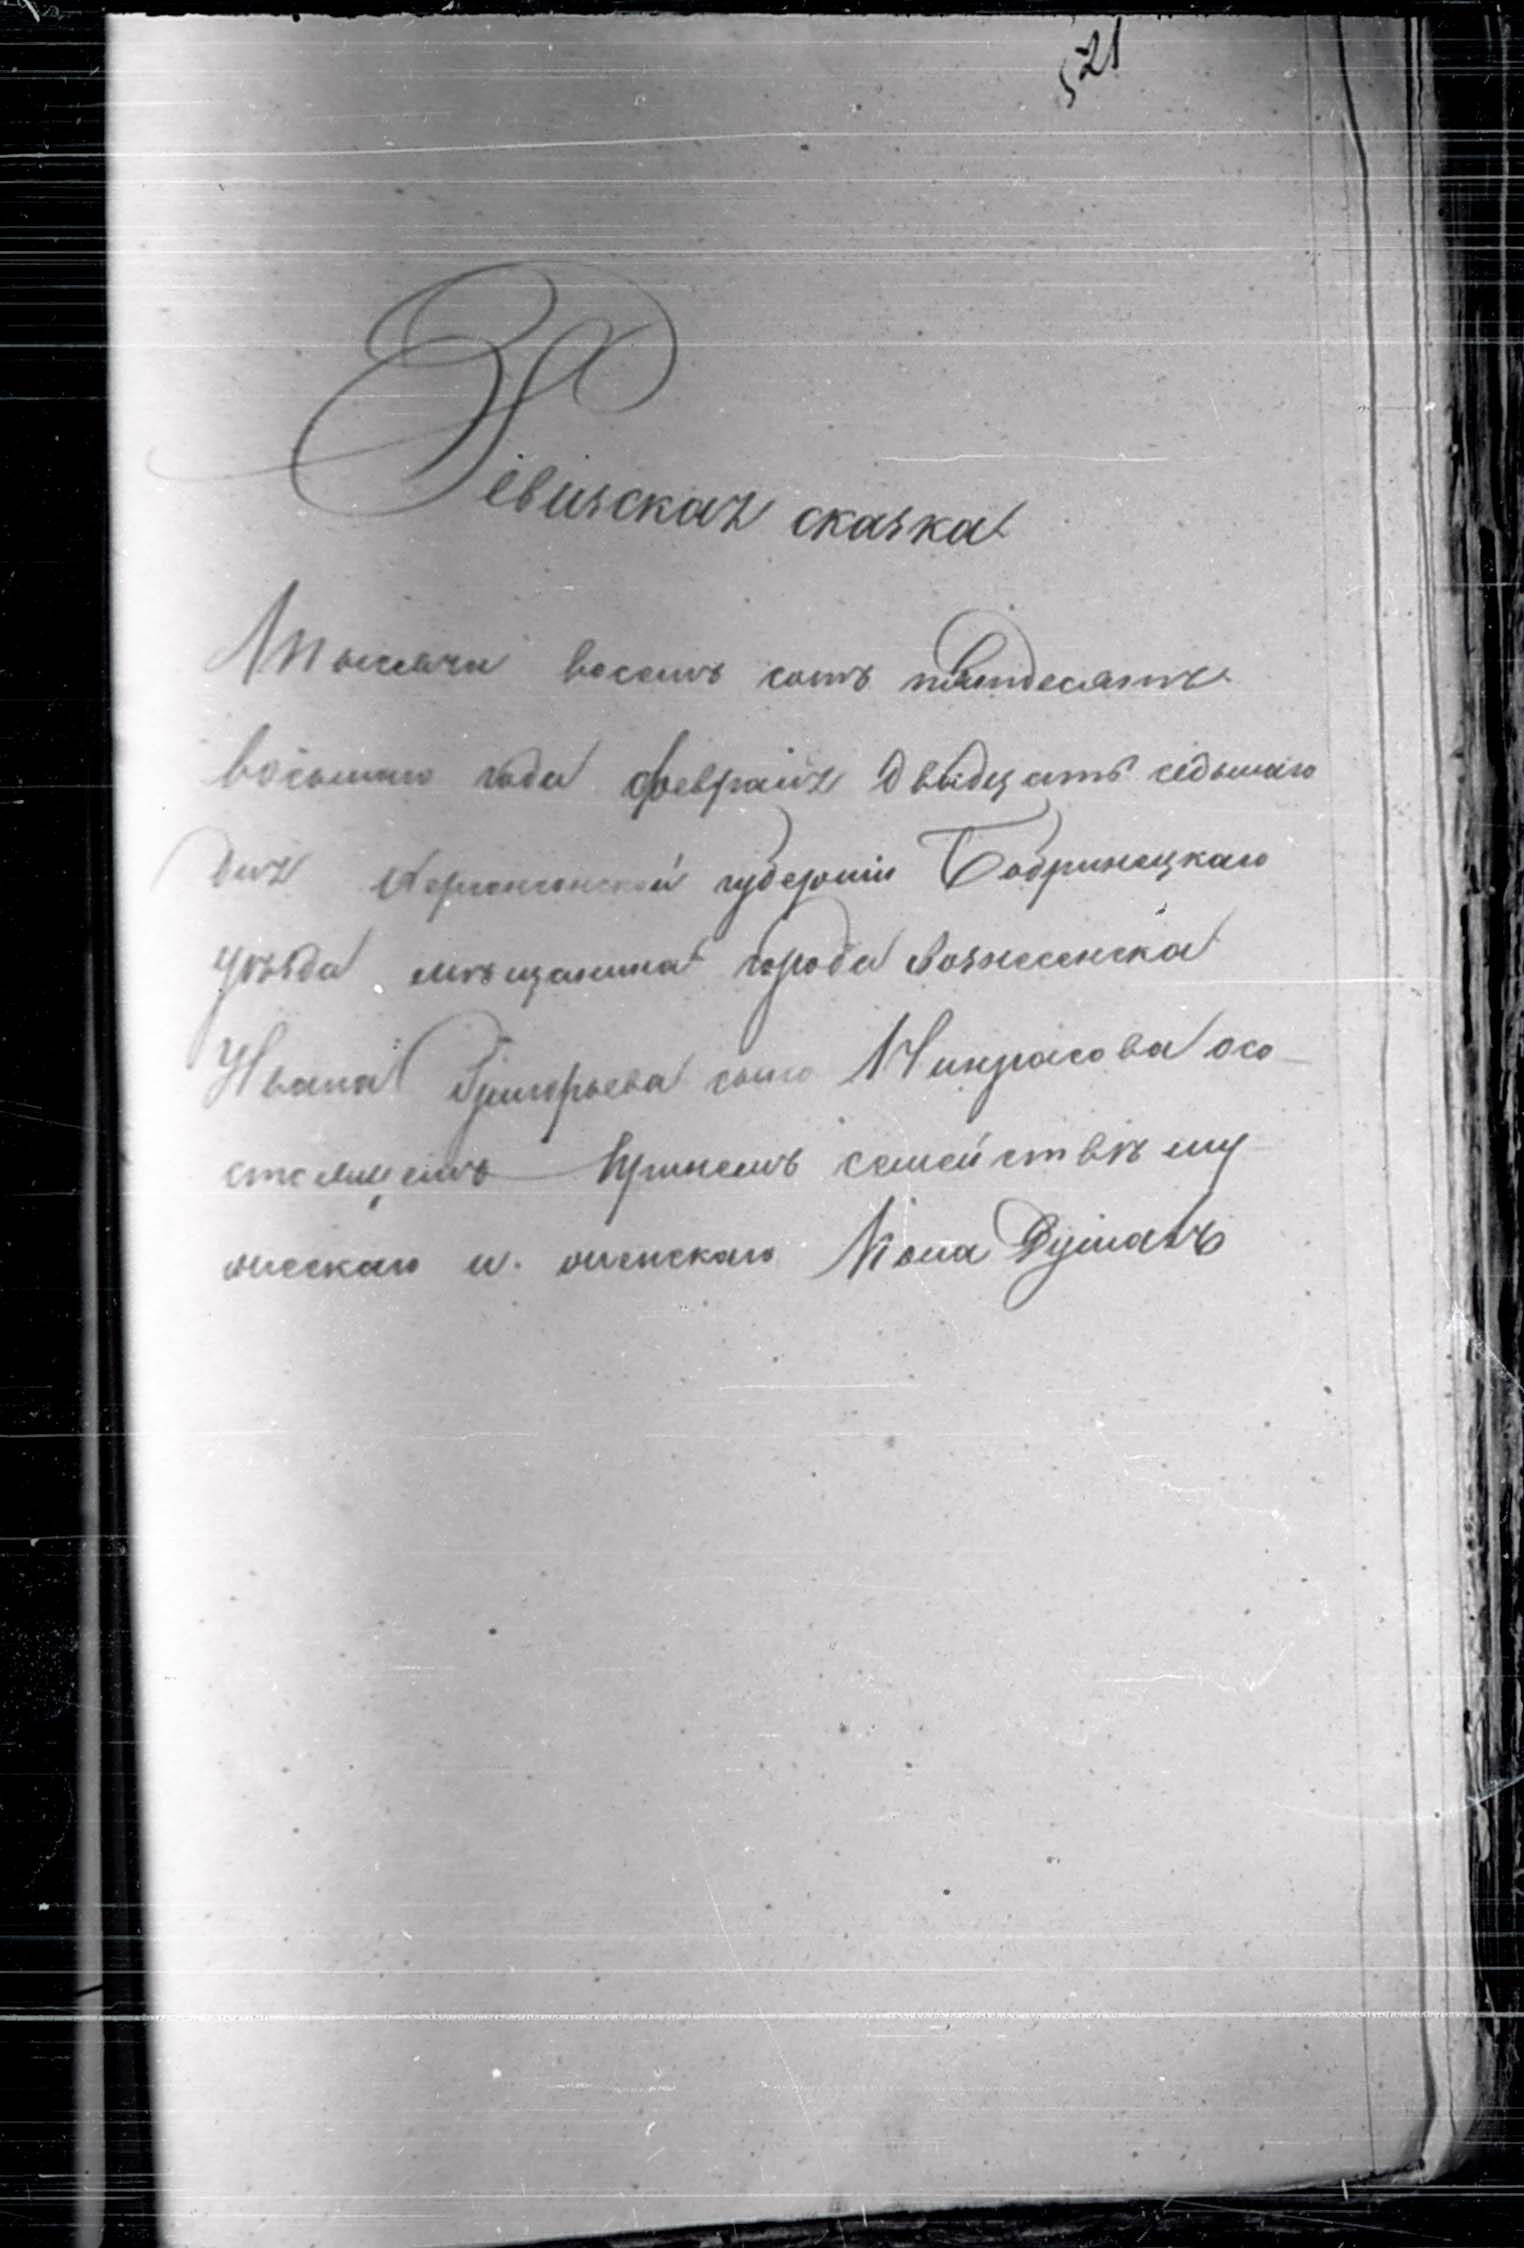 521
Ревизская сказка
Тысяча восемь сотъ пятдесятъ
восьмаго года февраля двадцать седьмаго
дня Херсонской губерніи Бобринецкаго
уѣзда мѣщанина города Вознесенска
Ивана Григорьева сына Никрасова о со
стоящемъ въ семействѣ му
жескаго и женскаго Пола Душахъ